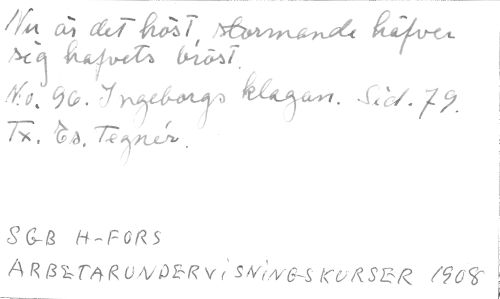 Nu är det höst, stormande häfver
sig hafvets bröst.
No. 96. Ingeborgs klagan. Sid. 79.
Tx. Es. Tegnér.
SGB H-FORS
ARBETARUNDERVISNINGSKURSER 1908